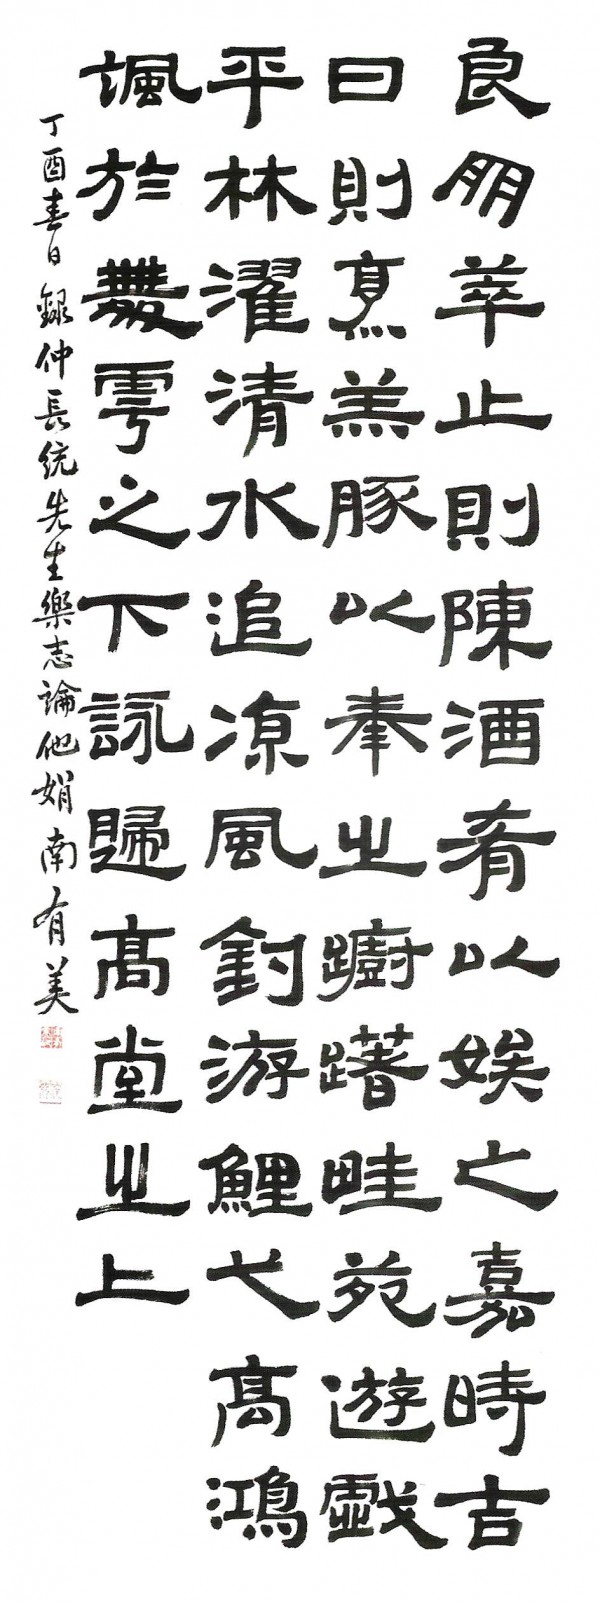 良朋萃止則陳酒肴以娛之嘉時吉
日則烹羔豚以奉之躕躇畦苑遊戲
平林濯清水追凉風釣游鯉弋高鴻
諷於舞雩之下詠歸高堂之上
丁酉春日錄仲長統先生樂志論他娟南有美